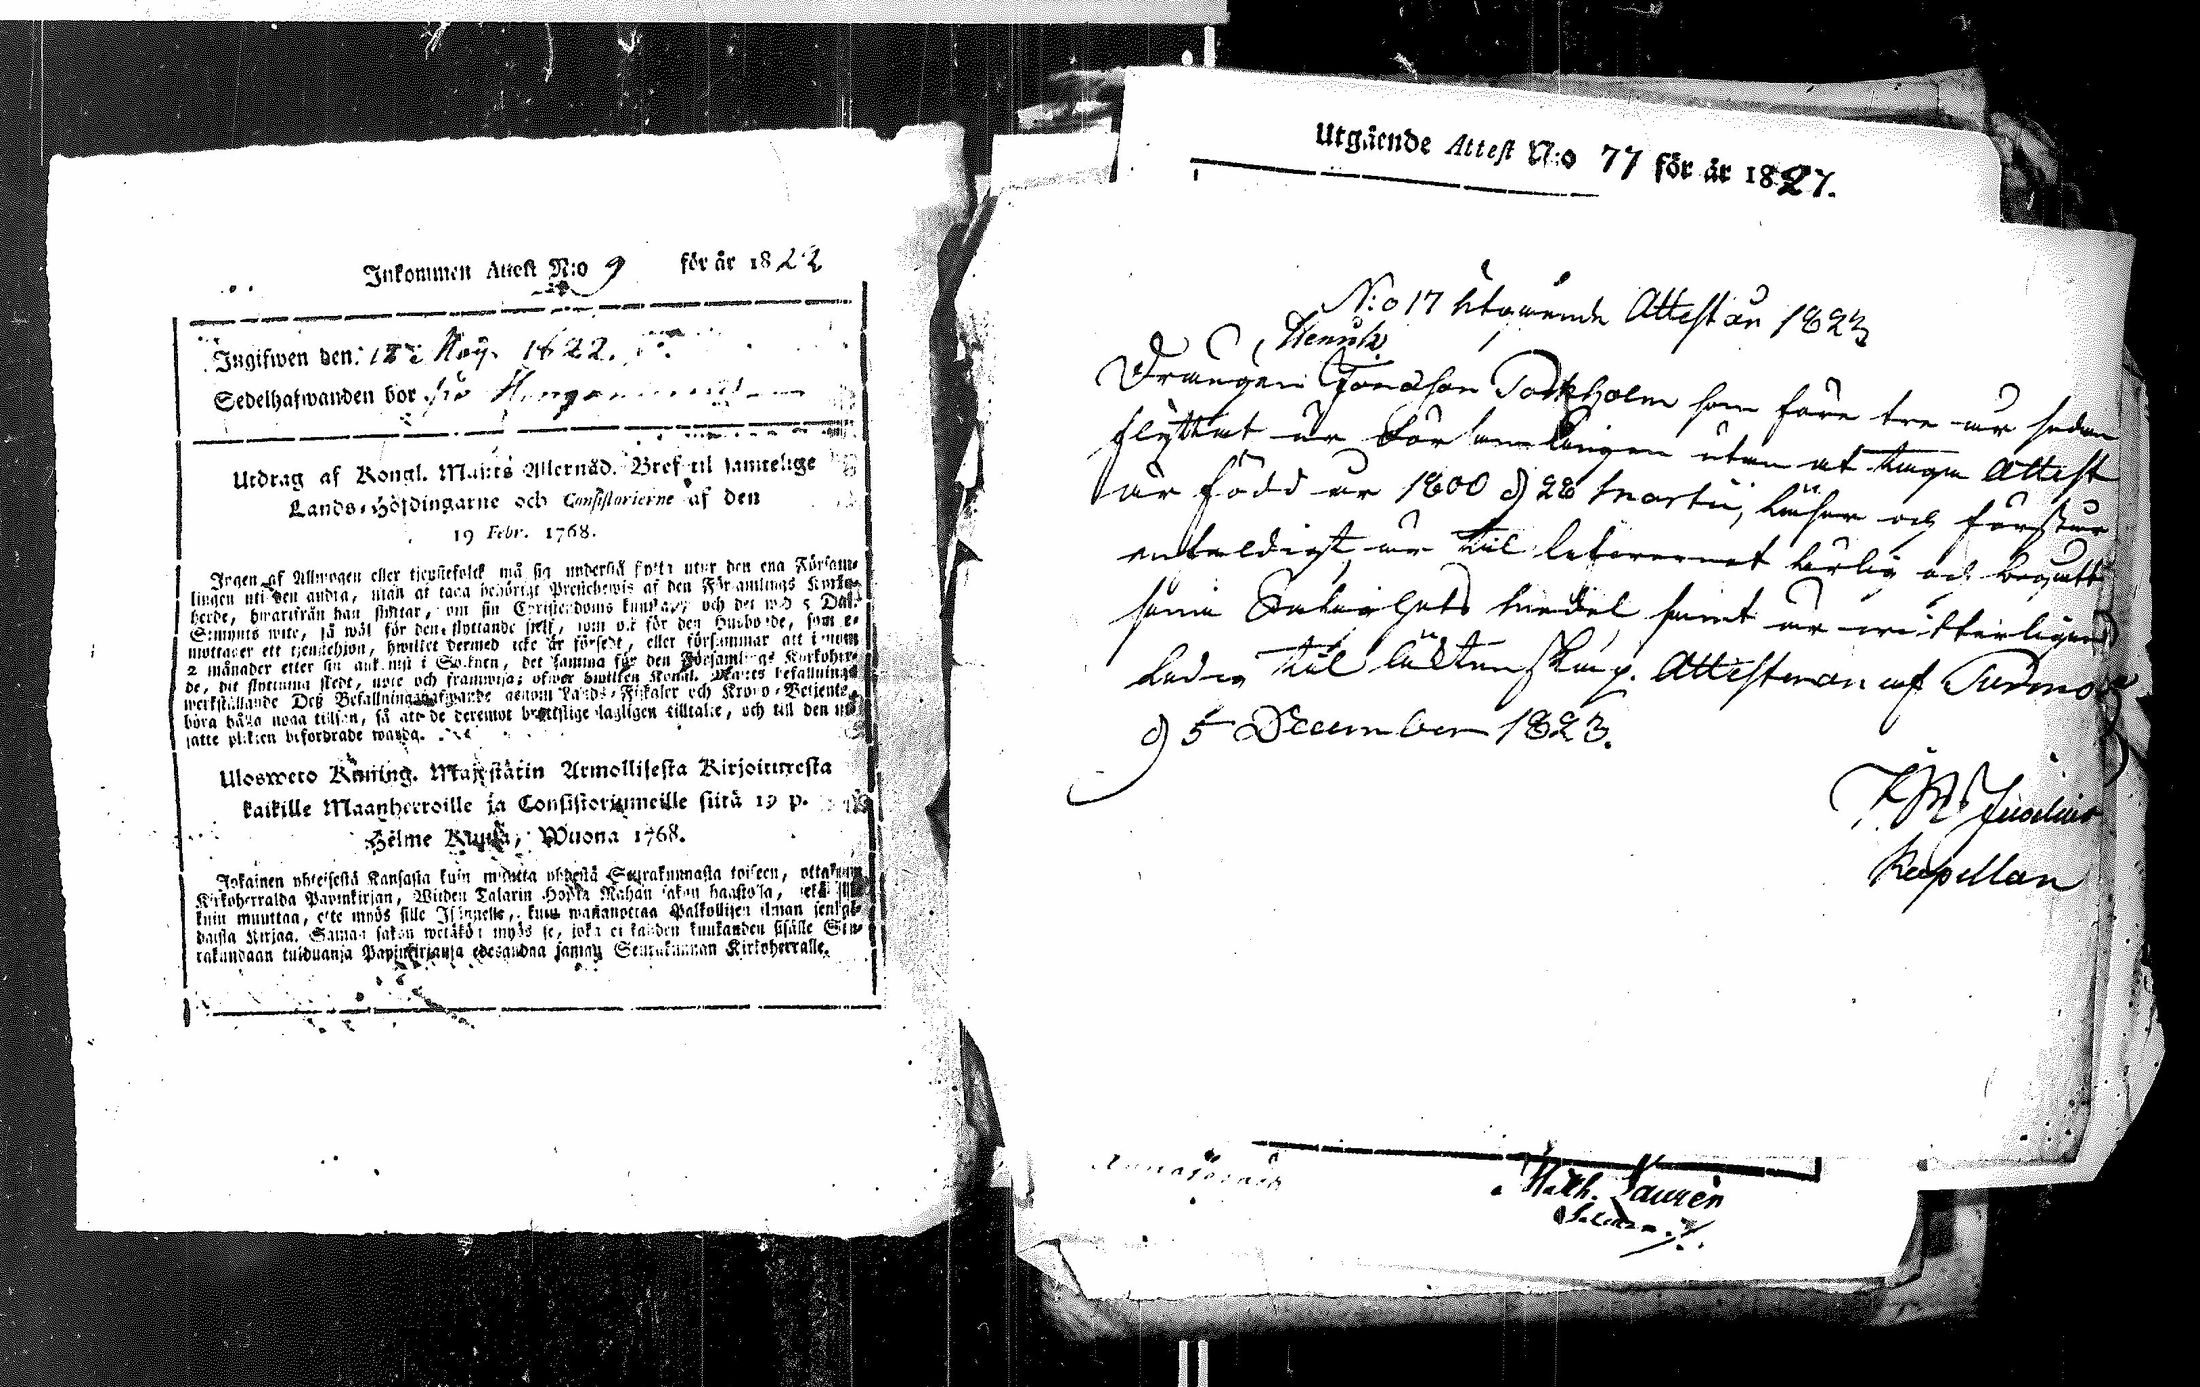 Inkommen Attest N:o 9 för år 1822
Ingifwen den 18 Maij. 1822.
Sedelhafwanden bor
Utdrag af Kongl. Maj:ts Allernåd. Bref til samtelige
Lands-Höfdingarne och Consistorierne af den
19 Febr. 1768.
Ingen af Allmogen eller tienstefolck må sig understå flytta utur den ena Försam-
lingen uti den andra, utan at taga behörigt Prestebewis af den Församlings Kyrko-
herde, hwarifrån han flyttar, om sin Christendoms kunskap och det wid 5 Dal.
S:mynts wite, så wäl för den flyttande sielf, som ock för den Husbonde, som e-
mottager ett tienstehjon, hwilket dermed icke är försedt, eller försummar att inom
2 månader efter sin ankomst i Socknen, det samma för den Församlings Kyrkoher-
de, dit flyttning skedt, upte och framwisa; öfwer hwilken Kongl. Maj:ts befallnings
werkställande Deß Befallningshafwande genom Lands-Fiskaler och Krono-Betjente
böra hålla noga tillsyn, så att de deremot brottslige lagligen tilltalte, och till den ut-
satte plikten befordrade warda.
Ulosweto Kuning. Majestätin Armollisesta Kirjoituxesta
kaikille Maanherroille ja Consistoriumeille siitä 19 p.
Helme Kuusa, Wuona 1768.
Jokainen yhteisestä Kansasta kuin muutta yhdestä Seurakunnasta toiseen, ottakaan
Kirkoherralda Papinkirjan, Wijden Talarin Hopia Rahan sakon haastolla, sekä sille
kuin muuttaa, ette myös sille Isännelle, kuin wastanottaa Palkollisen ilman senkal-
daista Kirjaa. Saman sakon wetäköi myös se, joka ei kahden kuukauden sisälle Seu-
rakundaan tulduansa Papinkirjansa edesandaa saman Seurakunnan Kirkoherralle.
Utgående Attest N:o 77 för år 1827.
N:o 17 utgående Attest år 1823
Henrik
Drängen Jonasson Tockholm som före tre år sedan
flyttat ur Församlingen utan at taga Attest
är född år 1800 d 28 Martii, läser och förstår
enfaldigt, är til lefvernet ärlig och begått
sina Salighets medel samt är witterligen
ledig til äktenskap. Attesteras af
d 5 December 1823.
Kapellan
Math. Lauren